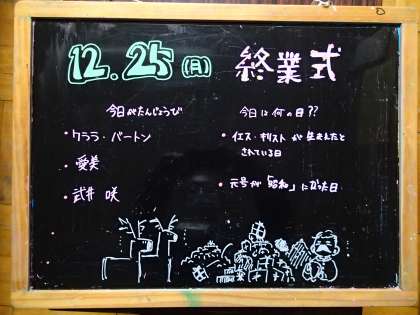 12.25(月) 終業式
今日がたんじょうび
・クララ・バートン
・愛美
・武井 咲
今日は何の日??
・イエス・キリストが生まれたと
されている日
・元号が「昭和」になった日